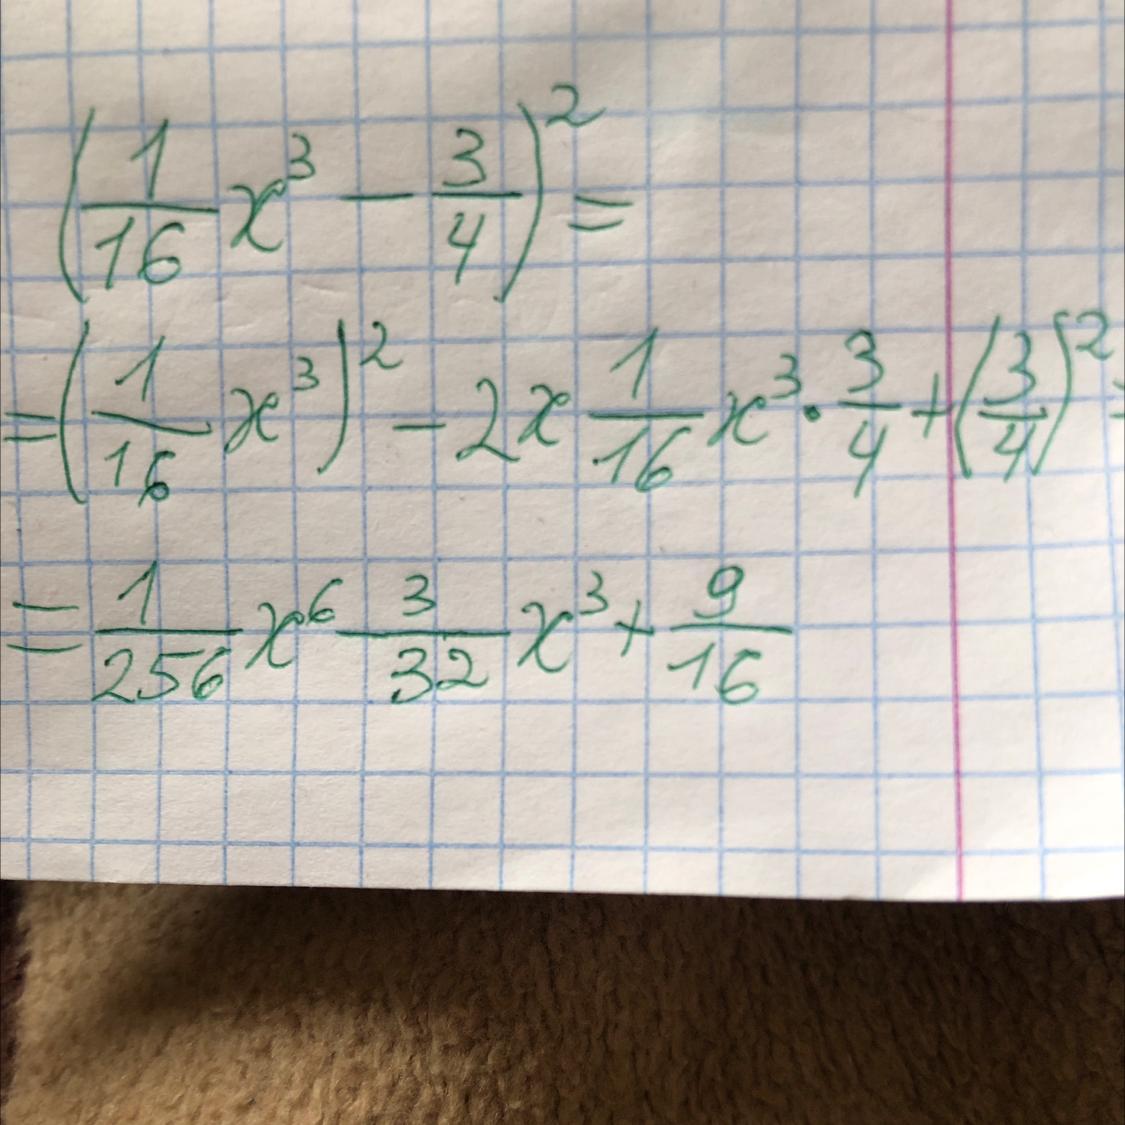 (1/16 x³ - 3/4)² =
= (1/16 x³)² - 2x 1/16 x³ · 3/4 + (3/4)² =
= 1/256 x⁶ 3/32 x³ + 9/16